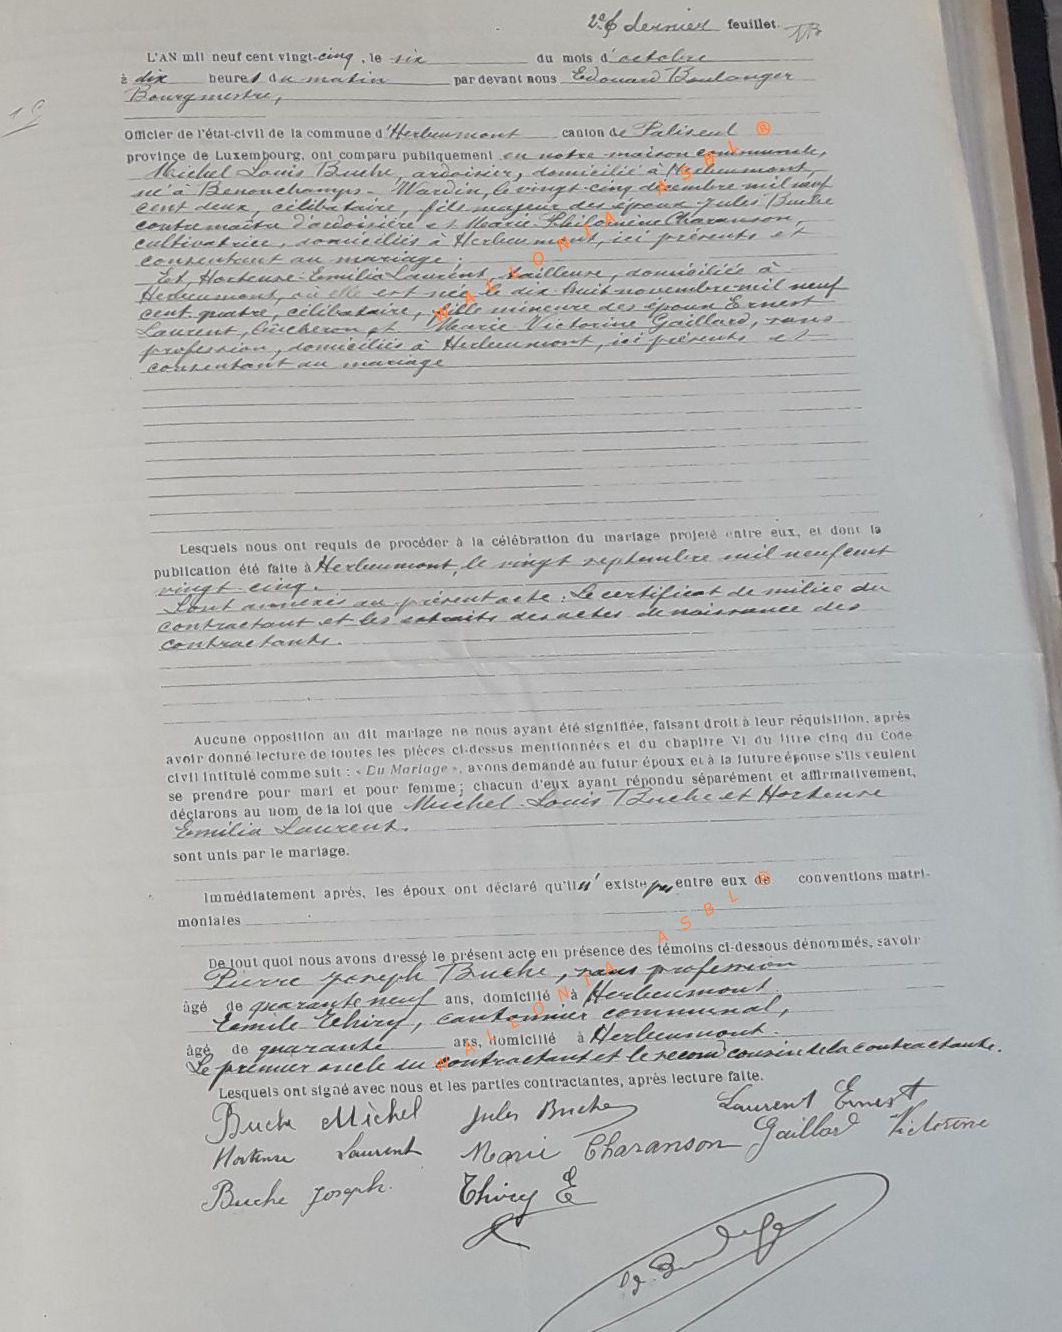 2e & dernier feuillet.
L'AN mil neuf cent vingt-cinq, le six du mois d'octobre
à dix heures du matin par devant nous Edouard Boulanger
Bourgmestre,
19
Officier de l'état-civil de la commune d'Herbeumont canton de Paliseul
province de Luxembourg, ont comparu publiquement en notre maison communale,
Michel Louis Buche, ardoisier, domicilié à Herbeumont,
né à Benonchamps-Wardin, le vingt-cinq décembre mil neuf
cent deux, célibataire, fils majeur des époux Jules Buche
contremaître d'ardoisière et Marie-Philomène Charanson,
cultivatrice, domiciliés à Herbeumont, ici présents et
consentant au mariage;
Et, Hortense-Emilia Laurent, tailleuse, domiciliée à
Herbeumont, où elle est née le dix-huit novembre mil neuf
cent quatre, célibataire, fille mineure des époux Ernest
Laurent, bûcheron et Marie Victorine Gaillard, sans
profession, domiciliés à Herbeumont, ici présents et
consentant au mariage
WALLONIA ASBL ®
Lesquels nous ont requis de procéder à la célébration du mariage projeté entre eux, et dont la
publication été faite à Herbeumont, le vingt septembre mil neuf cent
vingt cinq.
Sont annexés au présent acte: Le certificat de milice du
contractant et les extraits des actes de naissance des
contractants.
Aucune opposition au dit mariage ne nous ayant été signifiée, faisant droit à leur réquisition, après
avoir donné lecture de toutes les pièces ci-dessus mentionnées et du chapitre VI du titre cinq du Code
civil intitulé comme suit : « Du Mariage », avons demandé au futur époux et à la future épouse s'ils veulent
se prendre pour mari et pour femme; chacun d'eux ayant répondu séparément et affirmativement,
déclarons au nom de la loi que Michel-Louis Buche et Hortense
Emilia Laurent.
sont unis par le mariage.
Immédiatement après, les époux ont déclaré qu'il n'existe pas entre eux de conventions matri-
moniales
De tout quoi nous avons dressé le présent acte en présence des témoins ci-dessous dénommés, savoir
Pierre Joseph Buche, sans profession
âgé de quarante neuf ans, domicilié à Herbeumont.
Emile Thiry, cantonnier communal,
âgé de quarante ans, domicilié à Herbeumont.
Le premier oncle du contractant et le second cousin de la contractante.
WALLONIA ASBL ®
Lesquels ont signé avec nous et les parties contractantes, après lecture faite.
Buche Michel Jules Buche Laurent Ernest
Hortense Laurent Marie Charanson Gaillard Victorine
Buche Joseph. Thiry E